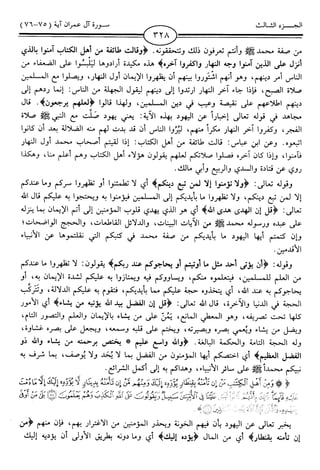 الجـزء الثـالث
سورة آل عمران آية (٧٥-٧٦)
٣٢٨
من صفة محمد ﷺ وأنتم تعرفون ذلك وتتحققونه. ﴿وقالت طائفة من أهل الكتاب آمنوا بالذي
أنزل على الذين آمنوا وجه النهار واكفروا آخره﴾ هذه مكيدة أرادوها ليَلْبسوا على الضعفاء من
الناس أمر دينهم، وهو أنهم اشتوروا بينهم أن يظهروا الإيمان أول النهار، ويصلوا مع المسلمين
صلاة الصبح، فإذا جاء آخر النهار ارتدوا إلى دينهم ليقول الجهلة من الناس: إنما ردهم إلى
دينهم اطلاعهم على نقيصة وعيب في دين المسلمين، ولهذا قالوا ﴿لعلهم يرجعون﴾. قال
مجاهد في قوله تعالى إخباراً عن اليهود بهذه الآية: يعني يهود صلّت مع النبي ﷺ صلاة
الفجر، وكفروا آخر النهار مكراً منهم، ليُرُوا الناس أن قد بدت لهم منه الضلالة بعد أن كانوا
اتبعوه. وعن ابن عباس: قالت طائفة من أهل الكتاب: إذا لقيتم أصحاب محمد أول النهار
فآمنوا، وإذا كان آخره فصلوا صلاتكم لعلهم يقولون هؤلاء أهل الكتاب وهم أعلم منا، وهكذا
روي عن قتادة والسدي والربيع وأبي مالك.
وقوله تعالى: ﴿ولا تؤمنوا إلا لمن تبع دينكم﴾ أي لا تطمئنوا أو تظهروا سركم وما عندكم
إلا لمن تبع دينكم، ولا تظهروا ما بأيديكم إلى المسلمين فيؤمنوا به ويحتجوا به عليكم قال الله
تعالى: ﴿قل إن الهدى هدى الله﴾ أي هو الذي يهدي قلوب المؤمنين إلى أتم الإيمان بما ينزله
على عبده ورسوله محمد ﷺ من الآيات البينات، والدلائل القاطعات، والحجج الواضحات؛
وإن كتمتم أيها اليهود ما بأيديكم من صفة محمد في كتبكم التي نقلتموها عن الأنبياء
الأقدمين.
وقوله: ﴿أن يؤتى أحد مثل ما أوتيتم أو يحاجوكم عند ربكم﴾ يقولون: لا تظهروا ما عندكم
من العلم للمسلمين، فيتعلموه منكم، ويساووكم فيه ويمتازوا به عليكم لشدة الإيمان به، أو
يحاجوكم به عند الله، أي يتخذوه حجة عليكم مما بأيديكم، فتقوم به عليكم الدلالة، وتتركّب
الحجة في الدنيا والآخرة، قال الله تعالى: ﴿قل إن الفضل بيد الله يؤتيه من يشاء﴾ أي الأمور
كلها تحت تصريفه، وهو المعطي المانع، يَمُنُّ على من يشاء بالإيمان والعلم والتصور التام،
ويضل من يشاء ويُعمي بصره وبصيرته، ويختم على قلبه وسمعه، ويجعل على بصره غشاوة،
وله الحجة التامة والحكمة البالغة. ﴿والله واسع عليم * يختص برحمته من يشاء والله ذو
الفضل العظيم﴾ أي اختصكم أيها المؤمنون من الفضل بما لا يُحَد ولا يُوصف، بما شرف به
نبيكم محمداً ﷺ على سائر الأنبياء، وهداكم به إلى أكمل الشرائع.
﴿ ۞ ومن أهل الكتاب من إن تأمنه بقنطار يؤده إليك ومنهم من إن تأمنه بدينار لا يؤده إليك إلا ما دمت
يخبر تعالى عن اليهود بأن فيهم الخونة ويحذر المؤمنين من الاغترار بهم، فإن منهم ﴿من
إن تأمنه بقنطار﴾ أي من المال ﴿يؤده إليك﴾ أي وما دونه بطريق الأولى أن يؤديه إليك